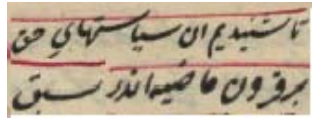 تا شنیدیم ان سیاستهای حق
بر قرون ماضیه اندر سبق